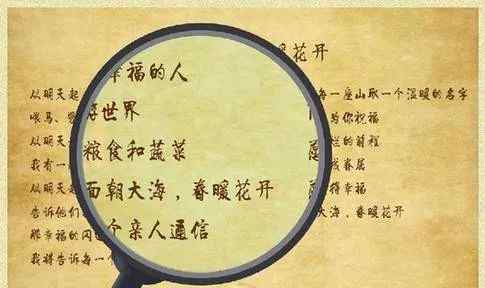 暖花开
从明天起
喂马、
从明天
我有一
从明天
告诉他们
那幸福的闪
我将告诉每一
幸福的人
游世界
粮食和蔬菜
面朝大海，春暖花开
个亲人通信
每一座山取一个温暖的名字
为你祝福
烂的前程
成眷属
得幸福
大海，春暖花开